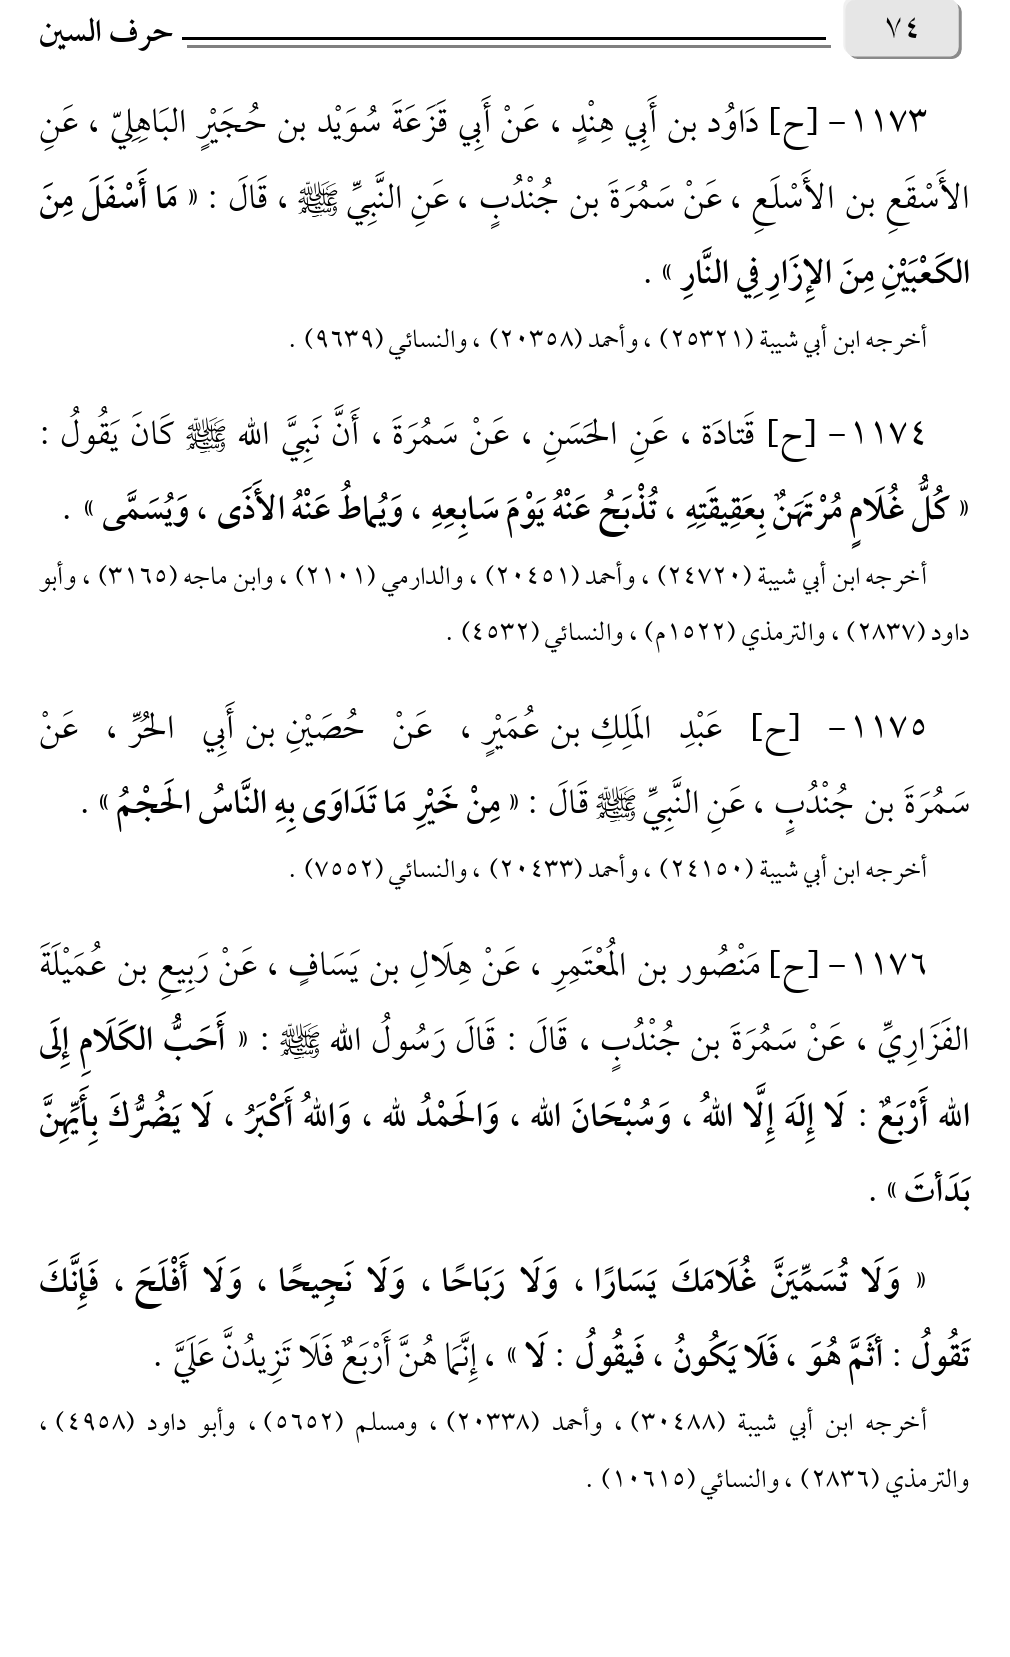 ٧٤ حرف السين
١١٧٣- [ح] دَاوُد بن أَبِي هِنْدٍ ، عَنْ أَبِي قَزَعَةَ سُوَيْد بن حُجَيْرٍ البَاهِلِيّ ، عَنِ
الأَسْقَعِ بن الأَسْلَعِ ، عَنْ سَمُرَةَ بن جُنْدُبٍ ، عَنِ النَّبِيِّ ﷺ ، قَالَ : « مَا أَسْفَلَ مِنَ
الكَعْبَيْنِ مِنَ الإِزَارِ فِي النَّارِ » .
أخرجه ابن أبي شيبة (٢٥٣٢١) ، وأحمد (٢٠٣٥٨) ، والنسائي (٩٦٣٩) .
١١٧٤- [ح] قَتادَة ، عَنِ الحَسَنِ ، عَنْ سَمُرَةَ ، أَنَّ نَبِيَّ الله ﷺ كَانَ يَقُولُ :
« كُلُّ غُلَامٍ مُرْتَهَنٌ بِعَقِيقَتِهِ ، تُذْبَحُ عَنْهُ يَوْمَ سَابِعِهِ ، وَيُماطُ عَنْهُ الأَذَى ، وَيُسَمَّى » .
أخرجه ابن أبي شيبة (٢٤٧٢٠) ، وأحمد (٢٠٤٥١) ، والدارمي (٢١٠١) ، وابن ماجه (٣١٦٥) ، وأبو
داود (٢٨٣٧) ، والترمذي (١٥٢٢م) ، والنسائي (٤٥٣٢) .
١١٧٥- [ح] عَبْدِ المَلِكِ بن عُمَيْرٍ ، عَنْ حُصَيْنِ بن أَبِي الحُرِّ ، عَنْ
سَمُرَةَ بن جُنْدُبٍ ، عَنِ النَّبِيِّ ﷺ قَالَ : « مِنْ خَيْرِ مَا تَدَاوَى بِهِ النَّاسُ الحَجْمُ » .
أخرجه ابن أبي شيبة (٢٤١٥٠) ، وأحمد (٢٠٤٣٣) ، والنسائي (٧٥٥٢) .
١١٧٦- [ح] مَنْصُور بن المُعْتَمِرِ ، عَنْ هِلَالِ بن يَسَافٍ ، عَنْ رَبِيعِ بن عُمَيْلَةَ
الفَزَارِيِّ ، عَنْ سَمُرَةَ بن جُنْدُبٍ ، قَالَ : قَالَ رَسُولُ الله ﷺ : « أَحَبُّ الكَلَامِ إِلَى
الله أَرْبَعٌ : لَا إِلَهَ إِلَّا اللهُ ، وَسُبْحَانَ الله ، وَالحَمْدُ لله ، وَاللهُ أَكْبَرُ ، لَا يَضُرُّكَ بِأَيِّهِنَّ
بَدَأتَ » .
« وَلَا تُسَمِّيَنَّ غُلَامَكَ يَسَارًا ، وَلَا رَبَاحًا ، وَلَا نَجِيحًا ، وَلَا أَفْلَحَ ، فَإِنَّكَ
تَقُولُ : أثَمَّ هُوَ ، فَلَا يَكُونُ ، فَيقُولُ : لَا » ، إِنَّمَا هُنَّ أَرْبَعٌ فَلَا تَزِيدُنَّ عَلَيَّ .
أخرجه ابن أبي شيبة (٣٠٤٨٨) ، وأحمد (٢٠٣٣٨) ، ومسلم (٥٦٥٢) ، وأبو داود (٤٩٥٨) ،
والترمذي (٢٨٣٦) ، والنسائي (١٠٦١٥) .